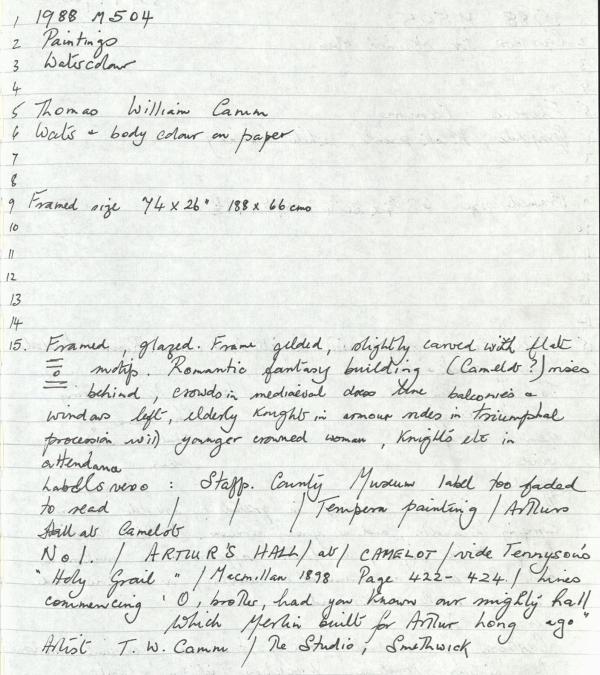 1 1988 M504
2 Paintings
3 Watercolour
4
5 Thomas William Camm
6 Wats + body colour on paper
7
8
9 Framed size 74 x 26" 188 x 66 cmo
10
11
12
13
14
15. Framed, glazed. Frame gilded, slightly carved with flat
motifs. Romantic fantasy building (Camelot?) rises
behind, crowds in mediaeval dress line balconies &
windows left, elderly Knight in armour rides in triumphal
procession with younger crowned woman, Knights etc in
attendance
Labels verso : Staff. County Museum label too faded
to read / / / Tempera painting / Arthurs
Hall at Camelot
No 1. / ARTHUR'S HALL / at / CAMELOT / vide Tennyson's
"Holy Grail" / Macmillan 1898 Page 422-424 / Lines
commencing 'O, brother, had you known our mighty hall
which Merlin built for Arthur long ago"
Artist T. W. Camm / The Studio, Smethwick